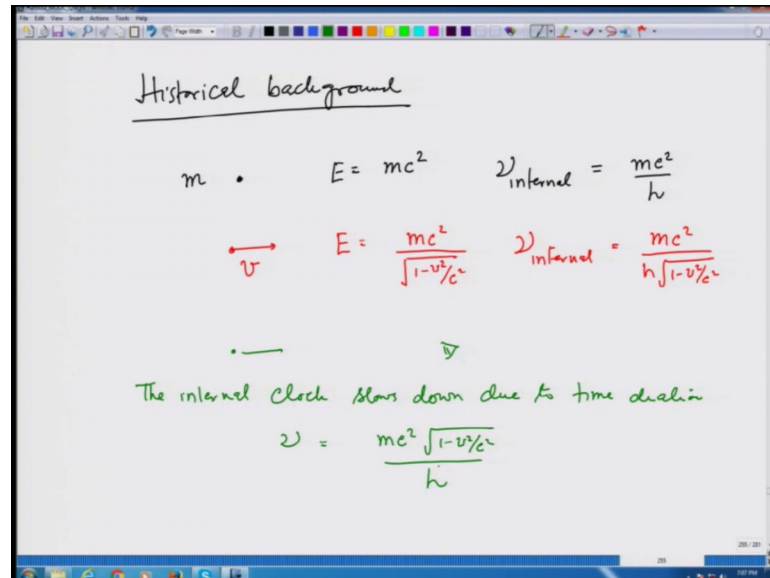 File Edit View Insert Actions Tools Help
Page Width
Historical background
m . E = mc² ν internal = mc²/h
v E = mc²/√1-v²/c² ν internal = mc²/h√1-v²/c²
The internal clock slows down due to time dilation
ν = mc²√1-v²/c²/h
255 / 281
255
7:07 PM